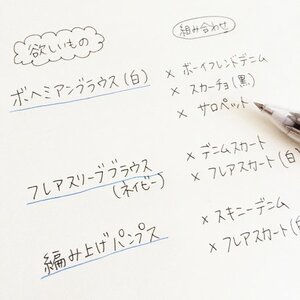 欲しいもの
組み合わせ
ボヘミアンブラウス(白)
× ボーイフレンドデニム
× スカーチョ(黒)
× サロペット
フレアスリーブブラウス
(ネイビー)
× デニムスカート
× フレアスカート(白
編み上げパンプス
× スキニーデニム
× フレアスカート(